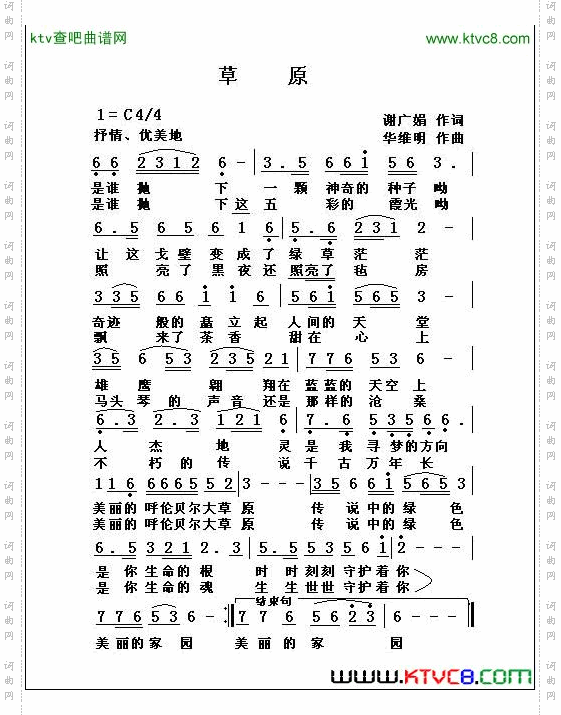 ktv查吧曲谱网 www.ktvc8.com
草 原
1=C4/4 谢广娟 作词
抒情、优美地 华维明 作曲
6 6 2 3 1 2 6 - | 3. 5 6 6 1 5 6 3. |
是谁 抛 下 一 颗 神奇的 种子 呦
是谁 抛 下 这 五 彩的 霞光 呦
6. 5 6 5 6 1 6 | 5. 6 2 3 1 2 - |
让 这 戈壁 变成了 绿草 茫 茫
照 亮了 黑夜还 照亮了 毡 房
3 3 5 6 6 1 1 6 | 5 6 1 5 6 5 3 |
奇迹 般的 矗 立起 人间的 天 堂
飘 来了 茶香 甜在 心 上
3 5 6 5 3 2 3 5 2 1 | 7 7 6 5 2 3 5 |
雄 鹰 翱 翔在 蓝蓝的 天空 上
马头 琴的 声音 还是 那样的 沧 桑
6. 3 2. 3 1 2 1 6 | 7. 6 5 3 5 6 6. |
人 杰 地 灵是 我 寻梦的方向
不 朽的 传 说 千古 万年 长
1 1 6 6 6 5 6 5 5 2 | 3 - - - | 3 5 6 6 1 5 6 5 3
美丽的 呼伦贝尔大草 原 传 说中的 绿 色
美丽的 呼伦贝尔大草 原 传 说中的 绿 色
5. 5 3 2 1 2. 3 | 5. 5 5 3 5 5 6 1 | 2 - - -
是 你生命的 根 时 时刻刻 守护着你
是 你生命的 魂 生 生世世 守护着你
结束句
7 7 6 5 3 6 - :‖ 7 7 6 5 6 2 3 | 6 - - - ‖
美丽的家 园 美 丽 的 家 园
www.KTVC8.com
词曲网
词曲网
词曲网
词曲网
词曲网
词曲网
词曲网
词曲网